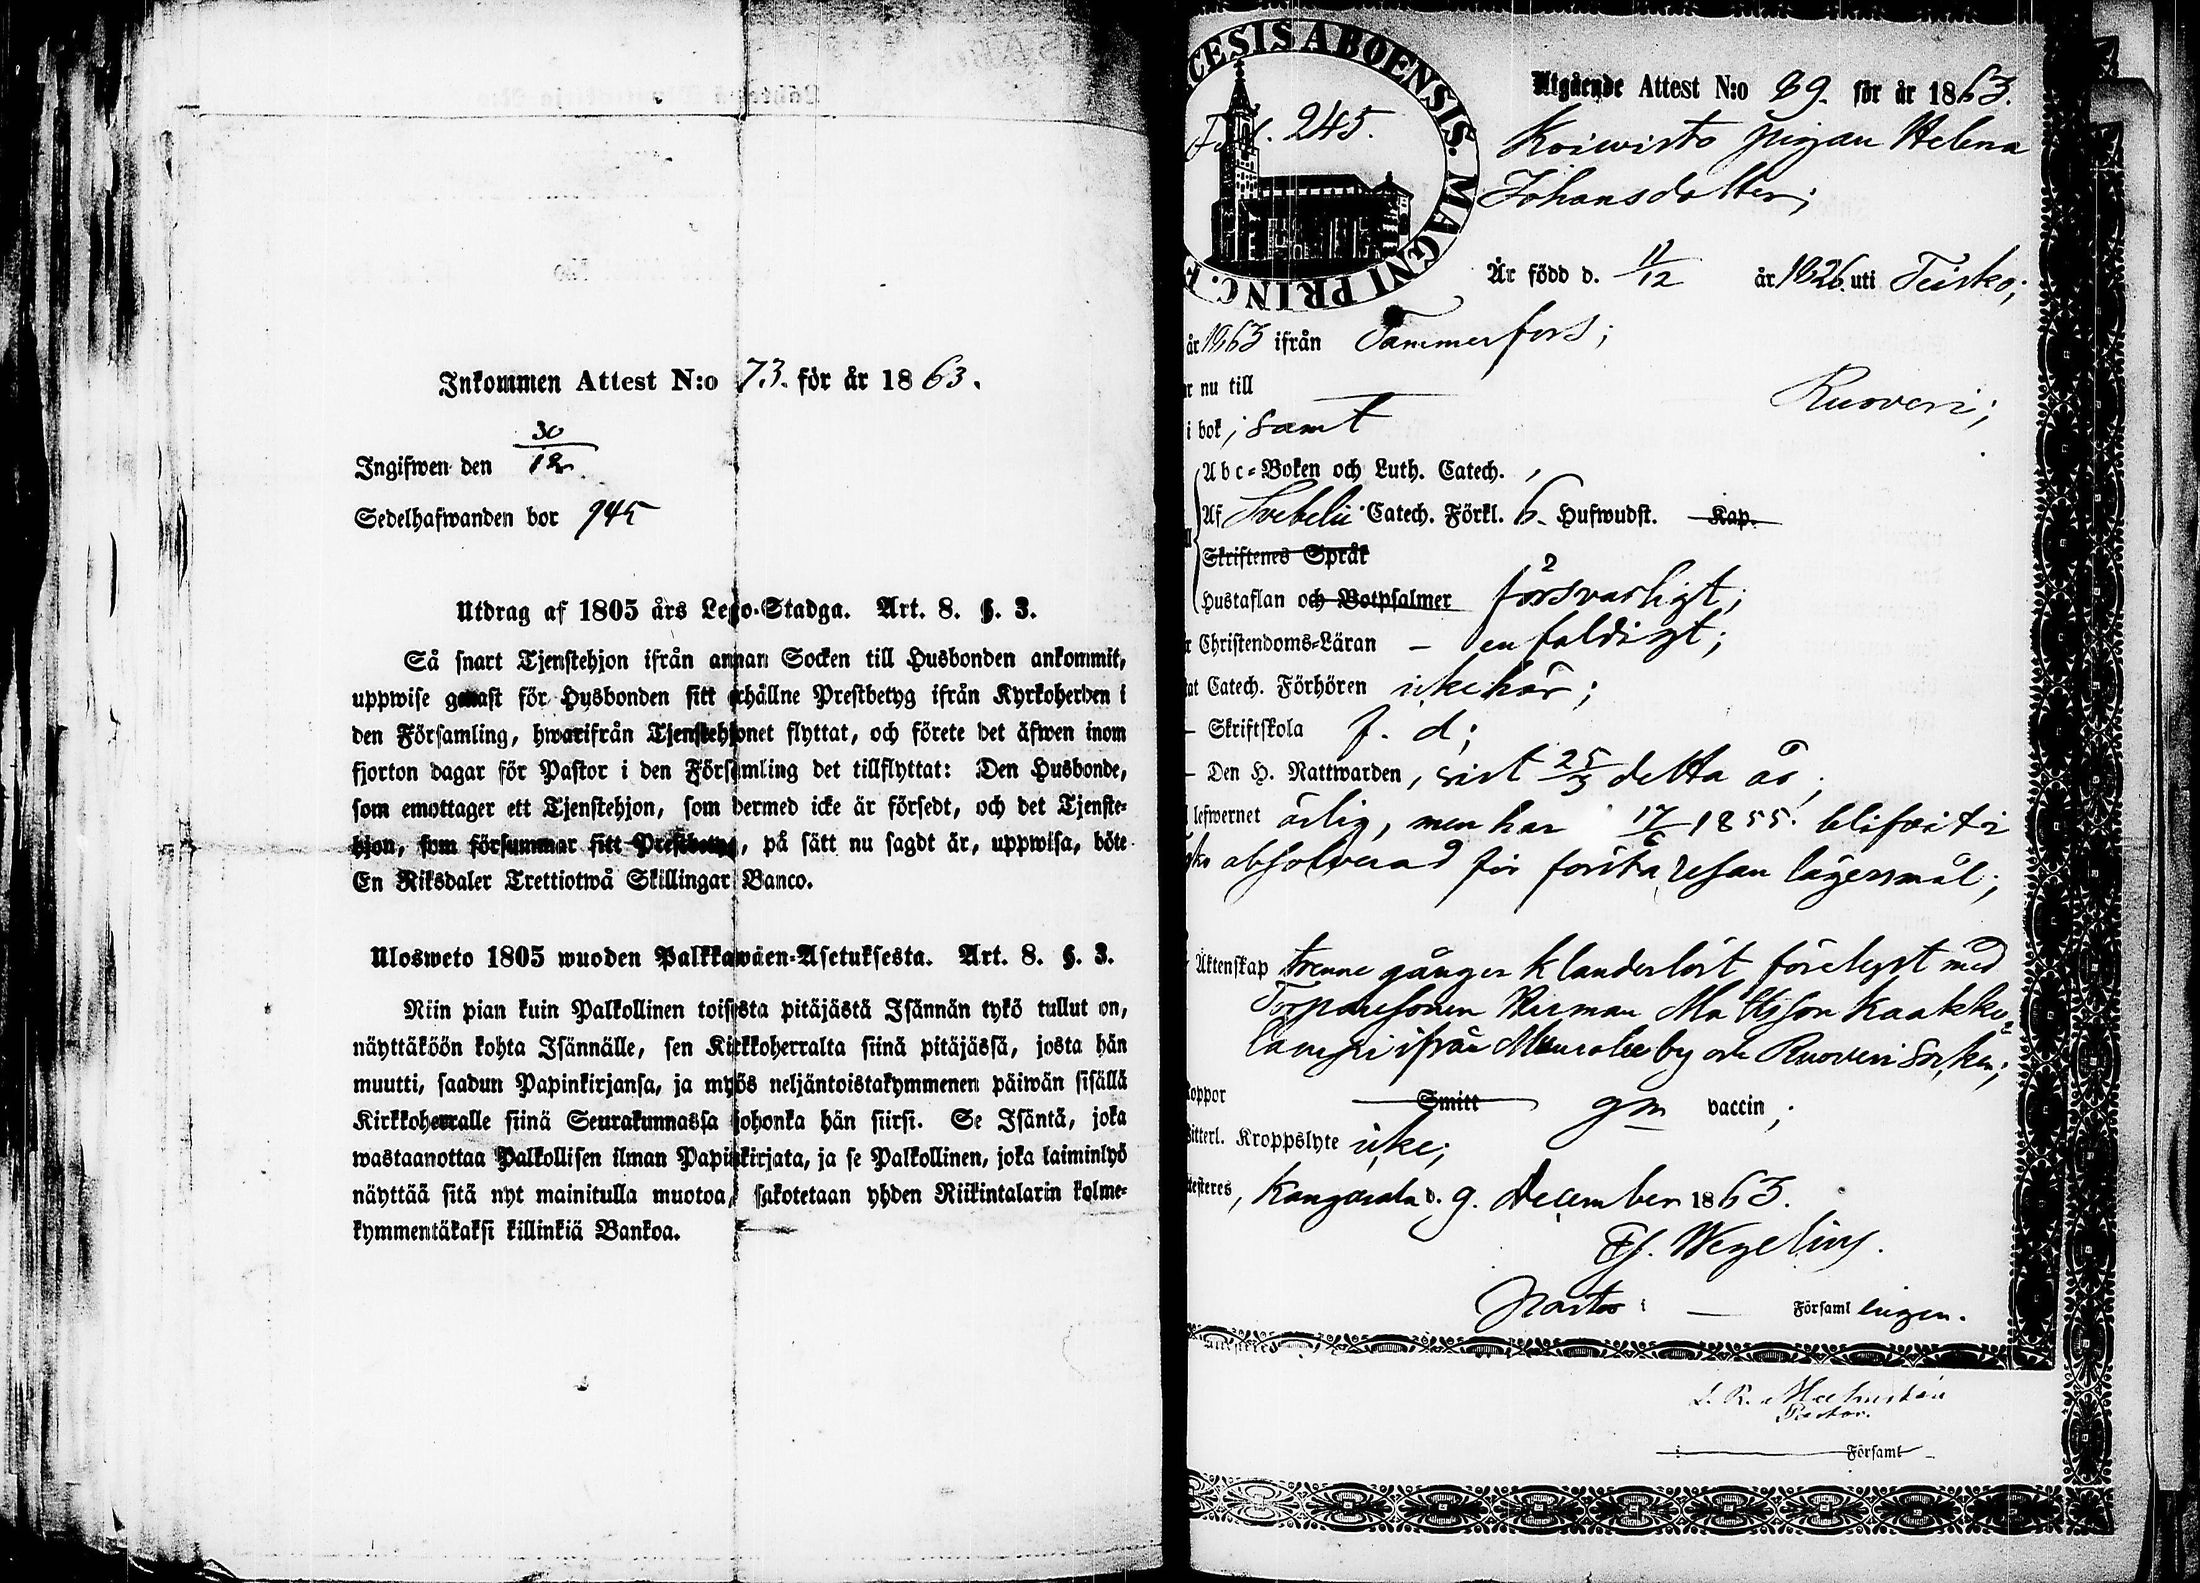 Inkommen Attest N:o 73. för år 1863.
Ingifwen den 30/12.
Sedelhafwanden bor 945
Utdrag af 1805 års Lego-Stadga. Art. 8. §. 3.
Så snart Tjenstehjon ifrån annan Socken till Husbonden ankommit,
uppwise genast för Husbonden sitt erhållne Prestbetyg ifrån Kyrkoherden i
den Församling, hwarifrån Tjenstehjonet flyttat, och förete det äfwen inom
fjorton dagar för Pastor i den Församling det tillflyttat: Den Husbonde,
som emottager ett Tjenstehjon, som dermed icke är försedt, och det Tjenste-
hjon, som försummar sitt Prestbetyg, på sätt nu sagdt är, uppwisa, böte
En Riksdaler Trettiotwå Skillingar Banco.
Ulosweto 1805 wuoden Palkkawäen-Asetuksesta. Art. 8. §. 3.
Niin pian kuin Palkollinen toisesta pitäjästä Isännän tykö tullut on,
näyttäköön kohta Isännälle, sen Kirkkoherralta siinä pitäjässä, josta hän
muutti, saadun Papinkirjansa, ja myös neljäntoistakymmenen päiwän sisällä
Kirkkoherralle siinä Seurakunnassa johonka hän siirsi. Se Isäntä, joka
wastaanottaa Palkollisen ilman Papinkirjata, ja se Palkollinen, joka laiminlyö
näyttää sitä nyt mainitulla muotoa, sakotetaan yhden Riikintalarin kolme-
kymmentäkaksi killinkiä Bankoa.
CESIS ABOENSIS. MAGNI PRINC.
Fol. 245.
Utgående Attest N:o 89. för år 1863.
Koiwisto pigan Helena
Johansdotter;
Är född d. 11/12 år 1826. uti Teisko;
år 1863 ifrån Tammerfors;
r nu till Ruovesi;
i bok; samt
Abc-Boken och Luth. Catech. ,
Af Svebelii Catech. Förkl. 6. Hufwudst. Kap.
Skriftenes Språk
Hustaflan och Botpsalmer försvarligt;
r Christendoms-Läran – enfaldigt;
at Catech. Förhören icke här;
– Skriftskola f. d;
– Den H. Nattwarden, sist 25/3 detta år,
lefwernet ärlig, men har 17/6 1855. blifvit i
absolverad för första resan lägersmål;
Äktenskap trenne gånger klanderlöst förelyst med
Torparesonen Herman Mattsson Kaakko-
lammi ifrån Muroleby och Ruovesi Socken;
koppor Smitt gm vaccin;
itterl. Kroppslyte icke;
testeres, Kangasala d. 9. December 1863.
Wegelius.
Pastor i — Församlingen.
Attesteres
Pastor.
i Församl